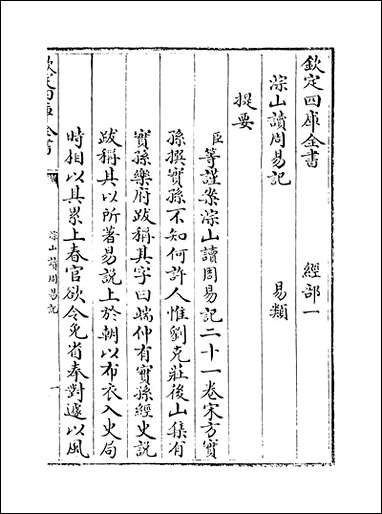 欽定四庫全書　經部一
淙山讀周易記　易類
提要
臣等謹案淙山讀周易記二十一卷宋方實
孫撰實孫不知何許人惟劉克莊後山集有
實孫樂府跋稱其字曰端仲有實孫經史說
跋稱其以所著易說上於朝以布衣入史局
時相以其累上春官欲令免省奏對遽以風
欽定四庫全書
淙山讀周易記
一